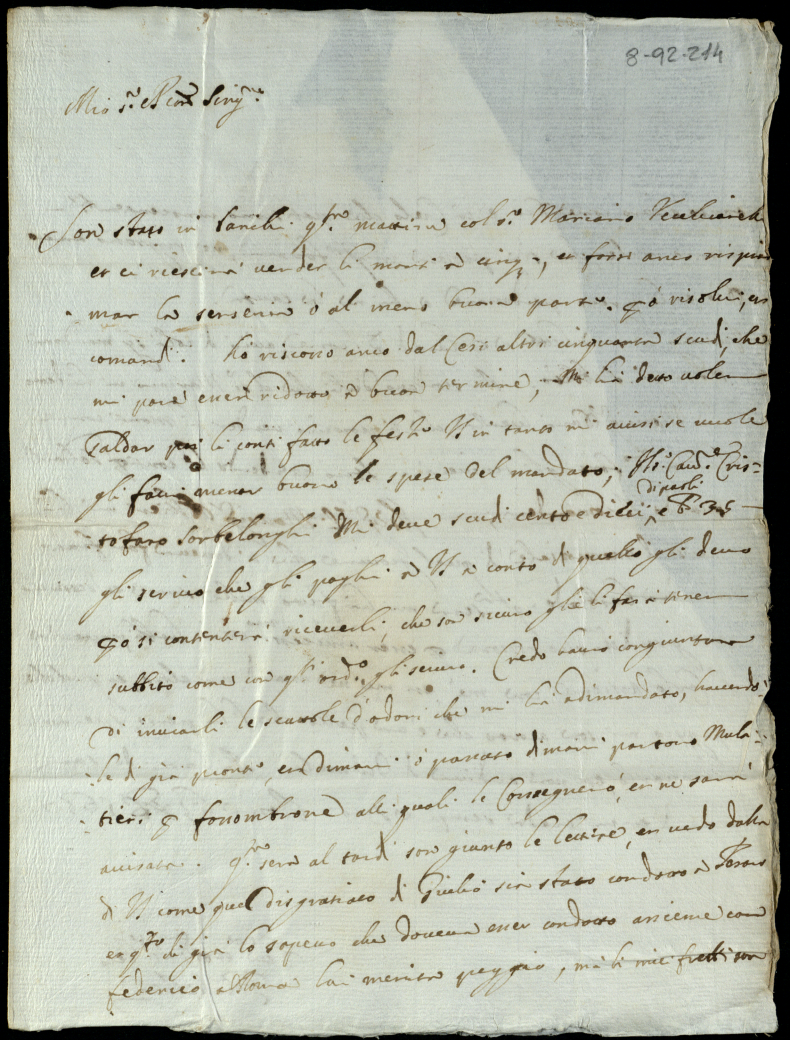 8-92-214
Mio s.re e P.ron Sing.re
Son stato in Banchi q.sta mattina col s.r Mariano Vecchiarelli
et ci riescirà vender li monti à cinq.e, et forse anco rispiar
mar la senseria ò al meno buona parte. però risolvi, et
comandi. Ho riscosso anco dal Cesi altri cinquanta scudi, che
mi pare esser ridotto à buon termine, Mi ha detto voler
saldar poi li conti fatto le feste VS in tanto mi avisi se vuole
gli facci menar buone le spese del mandato, Il s.r Cav.re Cris=
di paoli
tofaro Sorbelonghi Mi deve scudi cento e dieci, e 35
gli scrivo che gli paghi à VS à conto di quello gli devo
però si contenterà riceverli, che son sicuro gle li farà tener
subbito come con q.sto ord.o gli scrivo. Credo haver congiuntura
di inviarli le scattole d'odori che mi ha adimandato, havendo=
le di già pronte, et dimani ò passato dimani partono Mula=
tieri p fossombrone alli quali le Consegnerò, et ne sarrà
avisata. q.sta sera al tardi son giunte le lettere, et vedo dalla
di VS come quel disgratiato di Giulio sia stato condotto à Pesaro
et q.sto di già lo sapevo che doveva esser condotto assieme con
federico à Roma lui merita peggio, mà li miei fratelli son